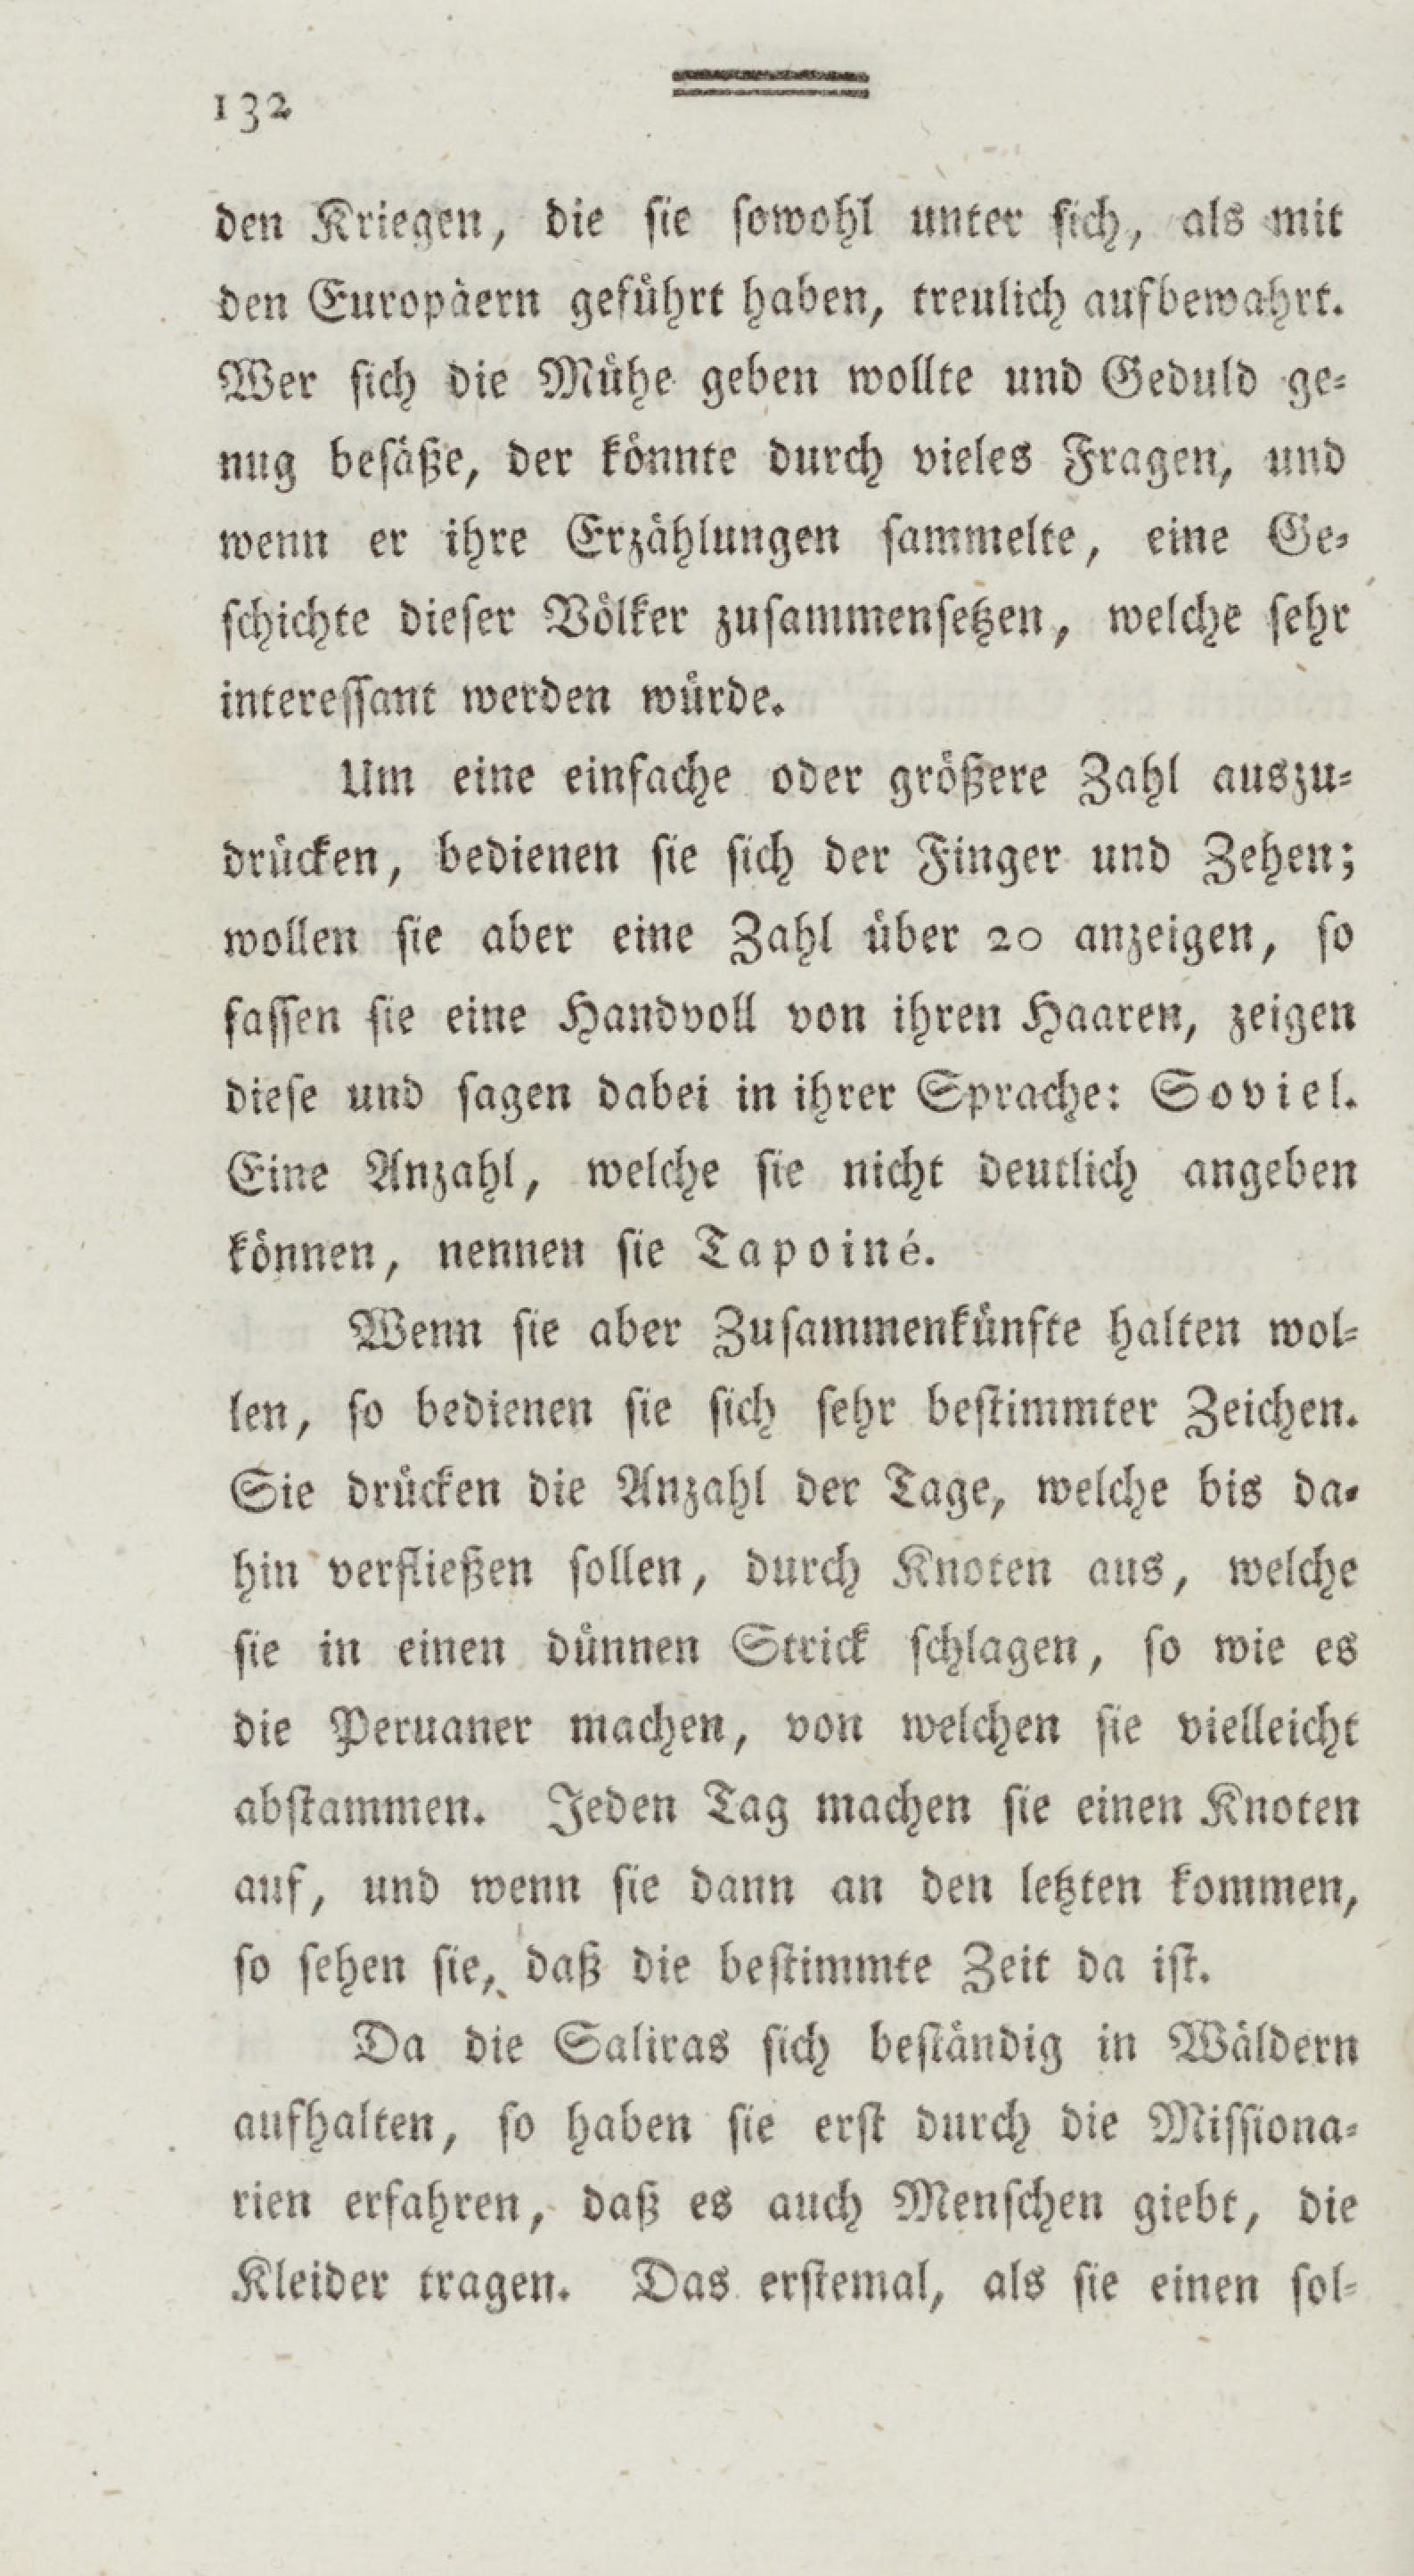 132
den Kriegen, die sie sowohl unter sich, als mit
den Europäern geführt haben, treulich aufbewahrt.
Wer sich die Mühe geben wollte und Geduld ge-
nug besäße, der könnte durch vieles Fragen, und
wenn er ihre Erzählungen sammelte, eine Ge-
schichte dieser Völker zusammensetzen, welche sehr
interessant werden würde.
Um eine einfache oder größere Zahl auszu-
drücken, bedienen sie sich der Finger und Zehen;
wollen sie aber eine Zahl über 20 anzeigen, so
fassen sie eine Handvoll von ihren Haaren, zeigen
diese und sagen dabei in ihrer Sprache: Soviel.
Eine Anzahl, welche sie nicht deutlich angeben
können, nennen sie Tapoiné.
Wenn sie aber Zusammenkünfte halten wol-
len, so bedienen sie sich sehr bestimmter Zeichen.
Sie drücken die Anzahl der Tage, welche bis da-
hin verfließen sollen, durch Knoten aus, welche
sie in einen dünnen Strick schlagen, so wie es
die Peruaner machen, von welchen sie vielleicht
abstammen. Jeden Tag machen sie einen Knoten
auf, und wenn sie dann an den letzten kommen,
so sehen sie, daß die bestimmte Zeit da ist.
Da die Saliras sich beständig in Wäldern
aufhalten, so haben sie erst durch die Missiona-
rien erfahren, daß es auch Menschen giebt, die
Kleider tragen. Das erstemal, als sie einen sol-